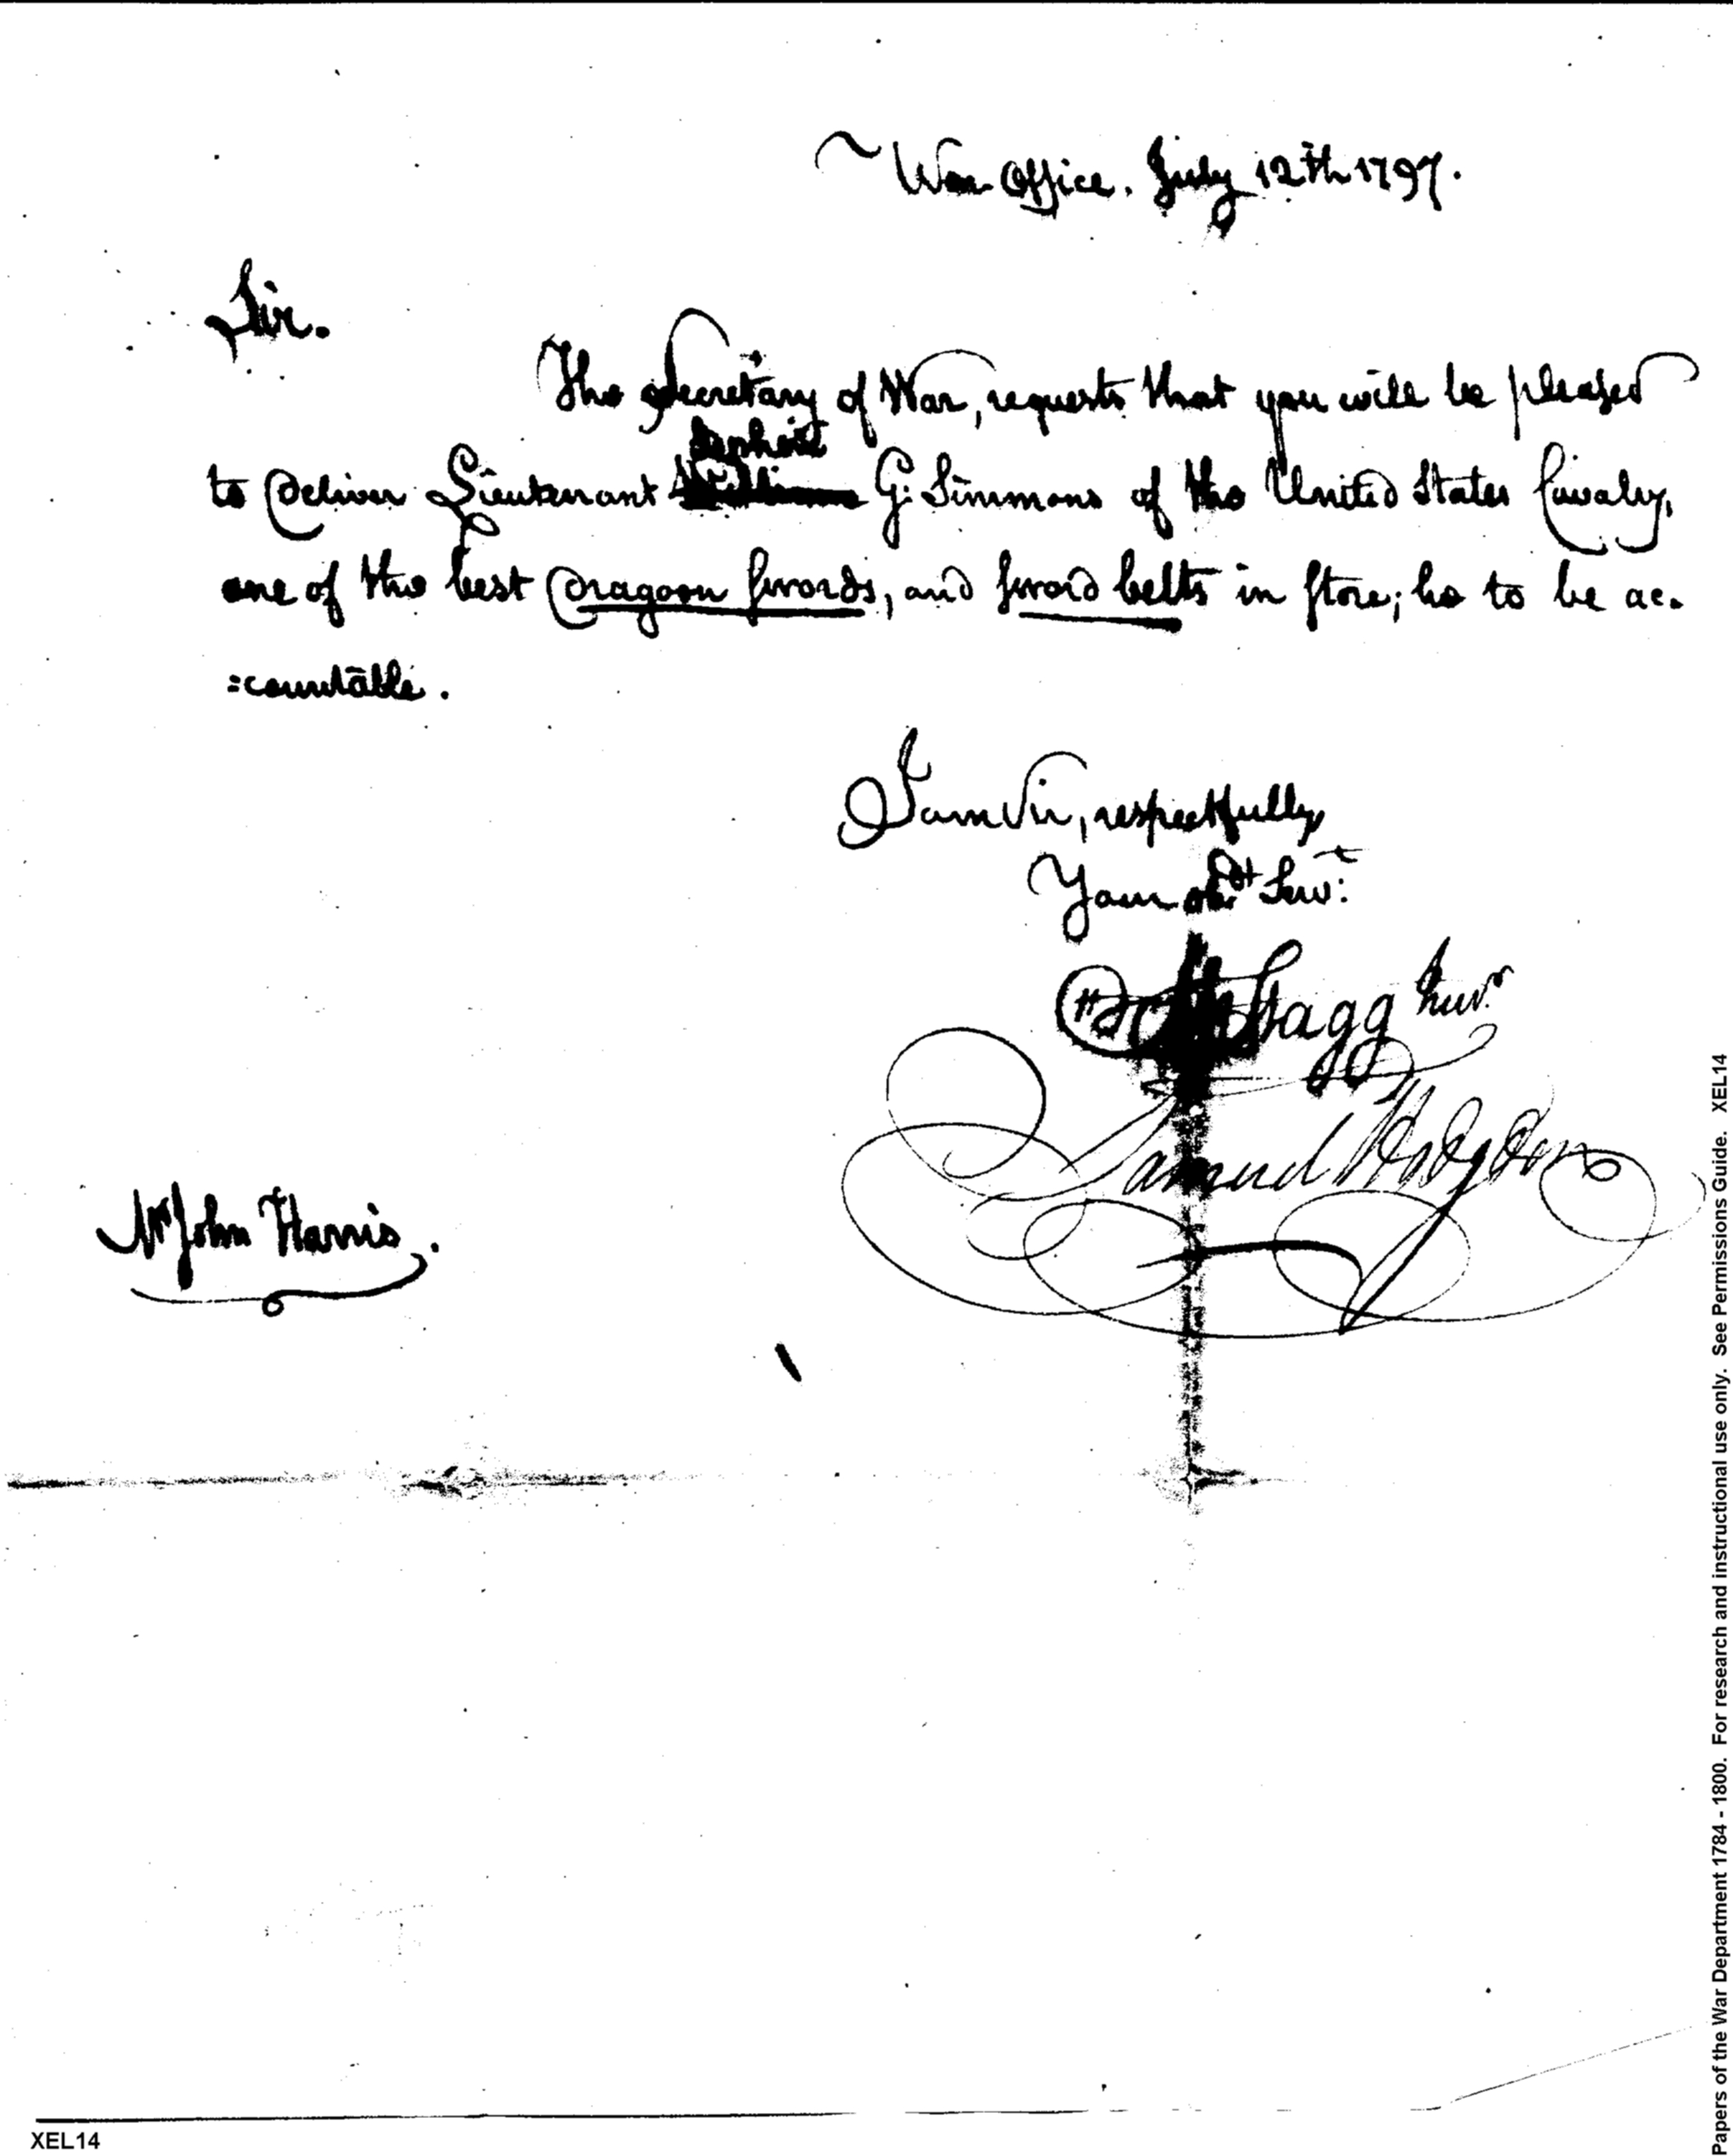 War Office. July 12th 1797.
Sir.
The Secretary of War, requests that you will be pleased
to Deliver Lieutenant G: Simmons of the United States Cavalry,
one of the best Dragoon Swords, and Sword belts in Store; he to be ac.
=countable.
I am Sir, respectfully
Your obdt Servt
Stagg Junr
Samuel Hodgdon
Mr John Harris.
Papers of the War Department 1784 - 1800. For research and instructional use only. See Permissions Guide. XEL14
XEL14